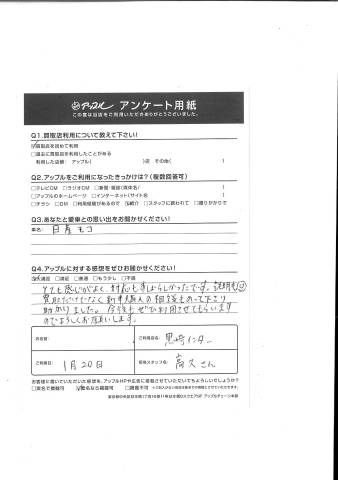 アップル アンケート用紙
この度は当店をご利用いただきありがとうございました。
Q1.買取店利用について教えて下さい!
☑買取店を初めて利用
□過去に買取店を利用したことがある
利用した店舗: アップル( )店 その他( )
Q2.アップルをご利用になったきっかけは?(複数回答可)
□テレビCM □ラジオCM □新聞・雑誌(媒体名: )
□アップルのホームページ □インターネット(サイト名 )
□チラシ □DM □利用経験があるので ☑紹介 □スタッフに誘われて □通りがかりで
Q3.あなたと愛車との思い出をお聞かせください!
車名: 日産モコ
Q4.アップルに対する感想をぜひお聞かせください!
☑大満足 □満足 □普通 □もう少し □不満
とても感じがよく、対応もすばらしかったです。説明も
買取だけでなく新車購入の相談ものって下さり
助かりました。今後もぜひ利用させてもらいます
のでよろしくお願いします。
お名前 ご利用店名: 黒崎インター
ご利用日: 1月20日 担当スタッフ名: 高久さん
お客様に書いていただいた感想を、アップルHPや広告に掲載させていただいてもよろしいでしょうか?
□実名で掲載可 ☑匿名なら掲載可 □掲載不可